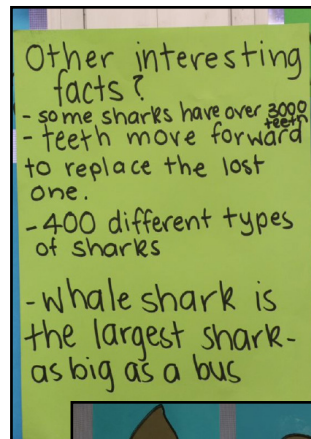 Other interesting
facts?
- some sharks have over 3000
teeth
- teeth move forward
to replace the lost
one.
- 400 different types
of sharks
- whale shark is
the largest shark-
as big as a bus